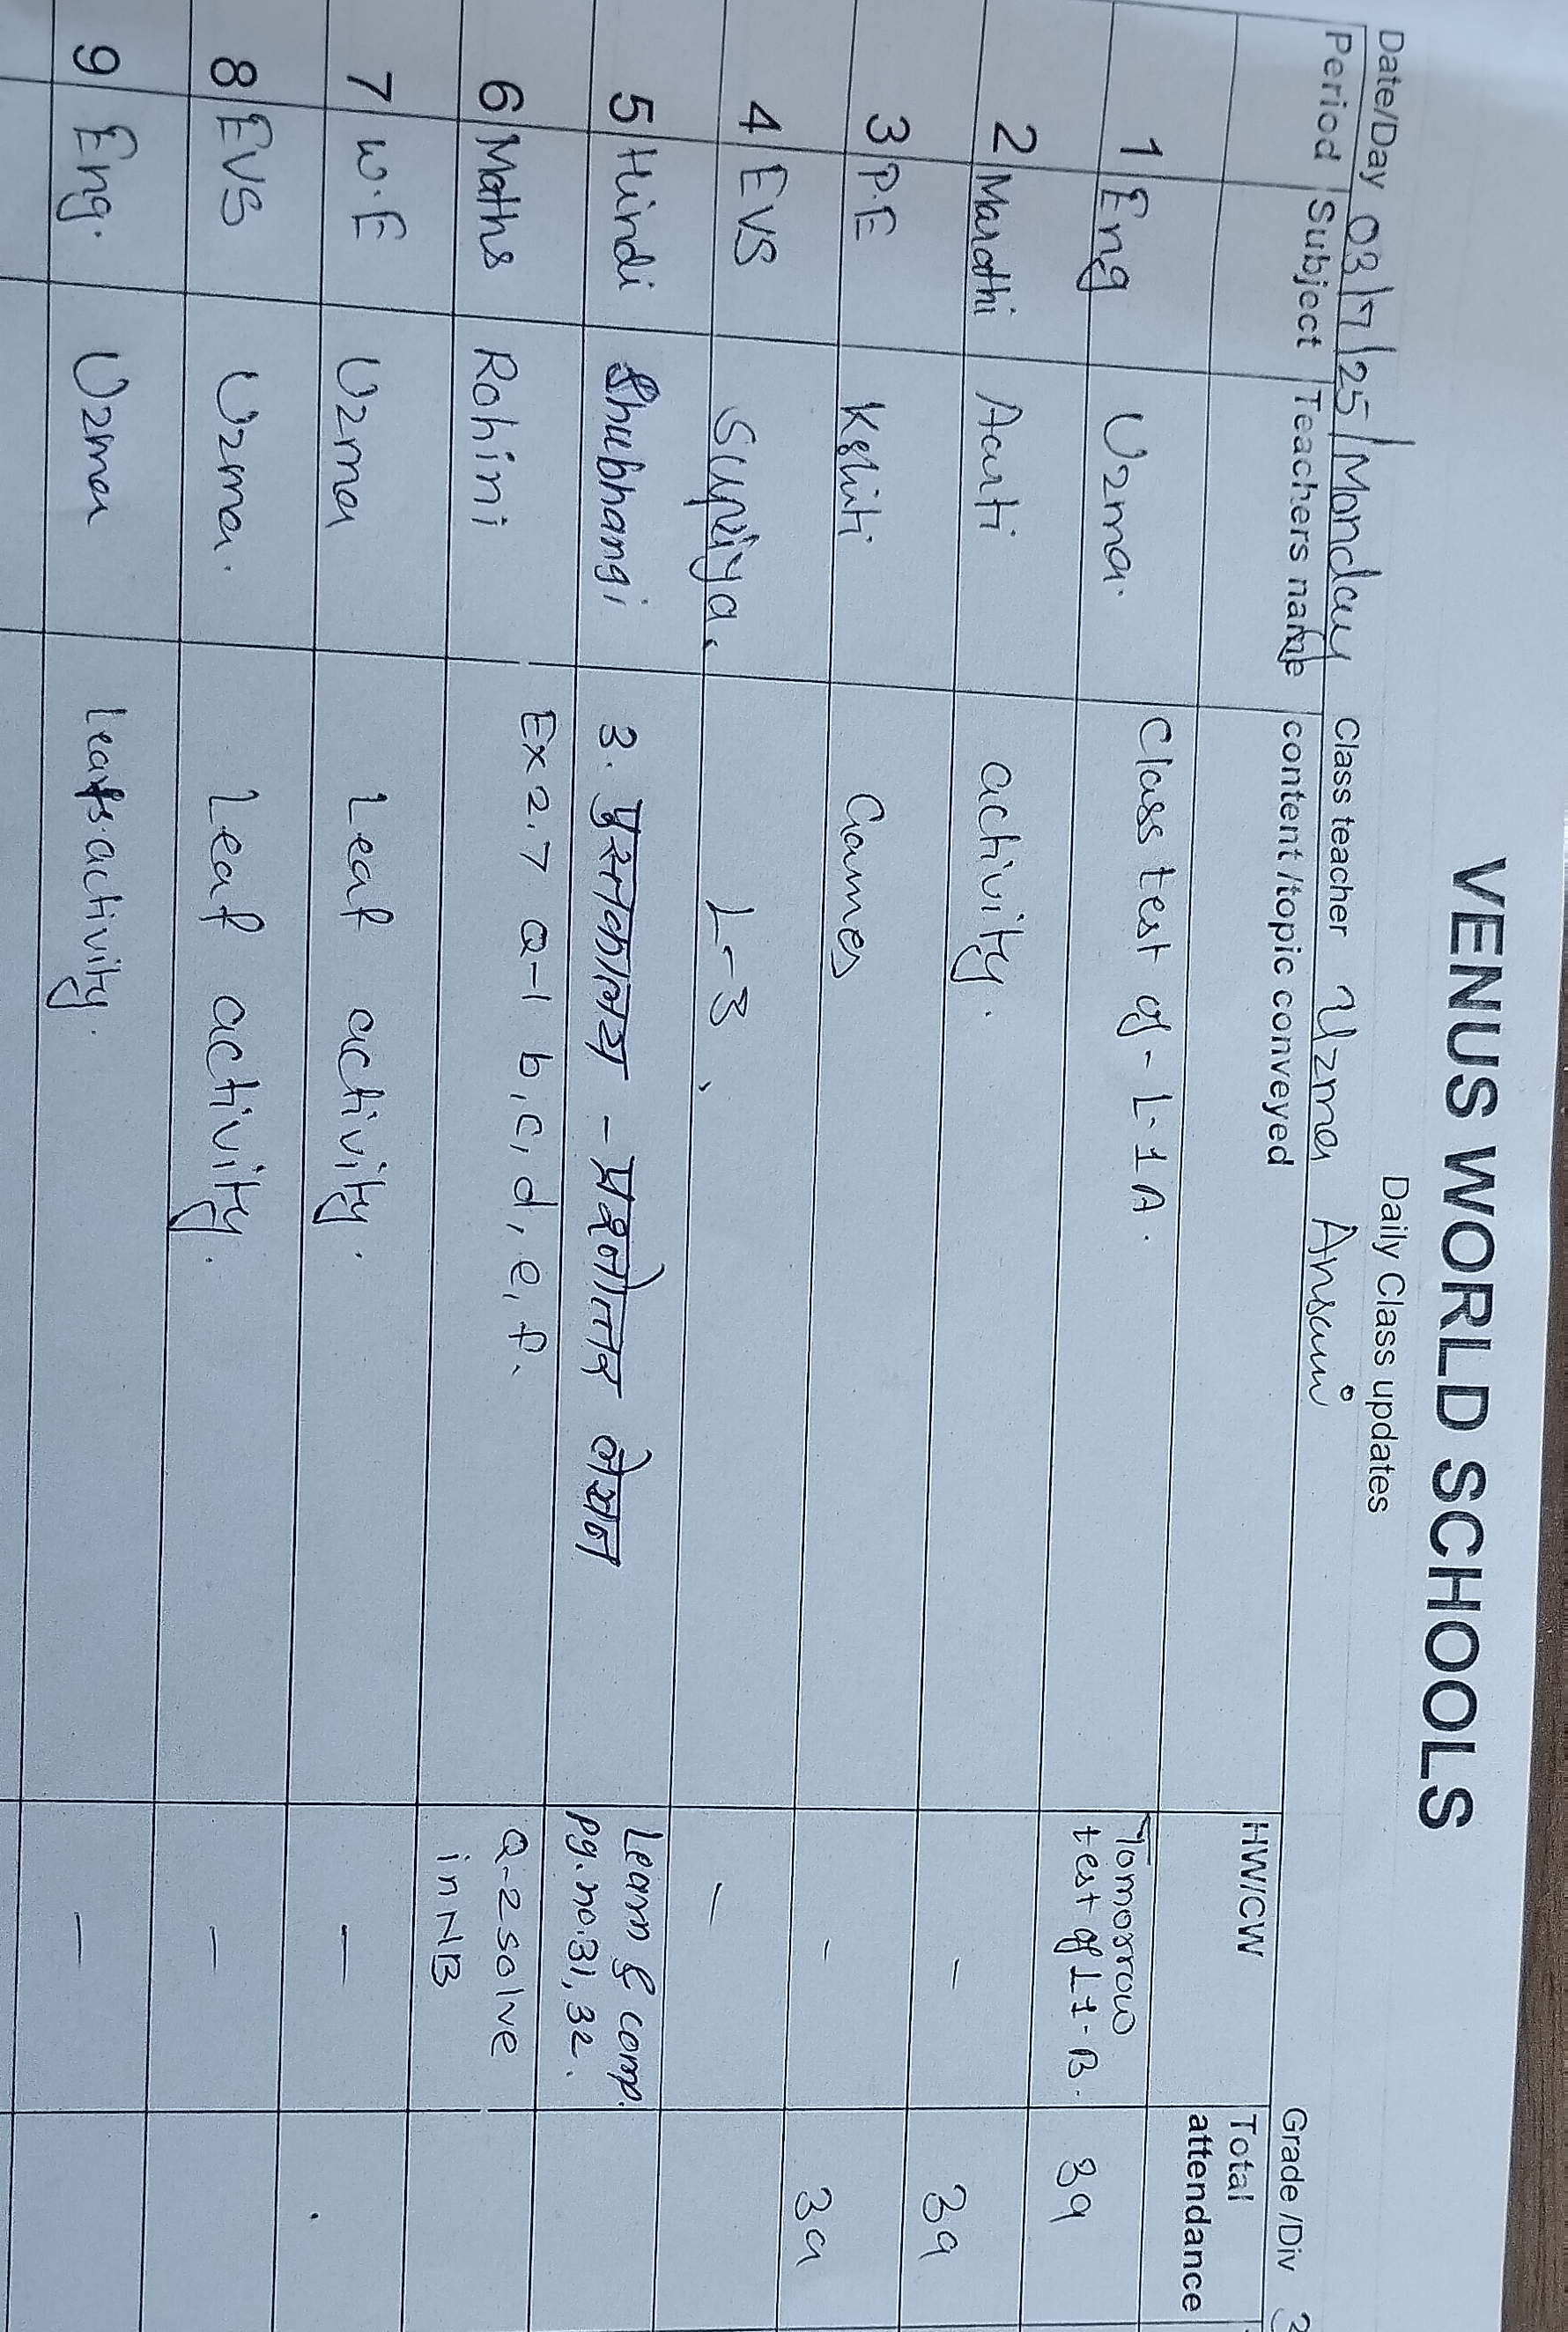 VENUS WORLD SCHOOLS
Daily Class updates
Date/Day 03/7/25/Monday Class teacher Uzma Ansari Grade /Div 3
Period Subject Teachers name content /topic conveyed HW/CW Total attendance
1 Eng Uzma. Class test of - L-1A. Tomorrow test of L1-B. 39
2 Marathi Aarti activity. - 39
3 P.E Kshiti Games - 39
4 EVS Supriya. L-3, -
5 Hindi Shubhangi 3. पुस्तकालय - प्रश्नोत्तर लेखन Learn & comp. pg.no.31,32.
6 Maths Rohini Ex 2.7 Q-1 b,c,d,e,f. Q-2 solve in NB
7 W.E Uzma Leaf activity. -
8 EVS Uzma. Leaf activity. -
9 Eng. Uzma activity. -